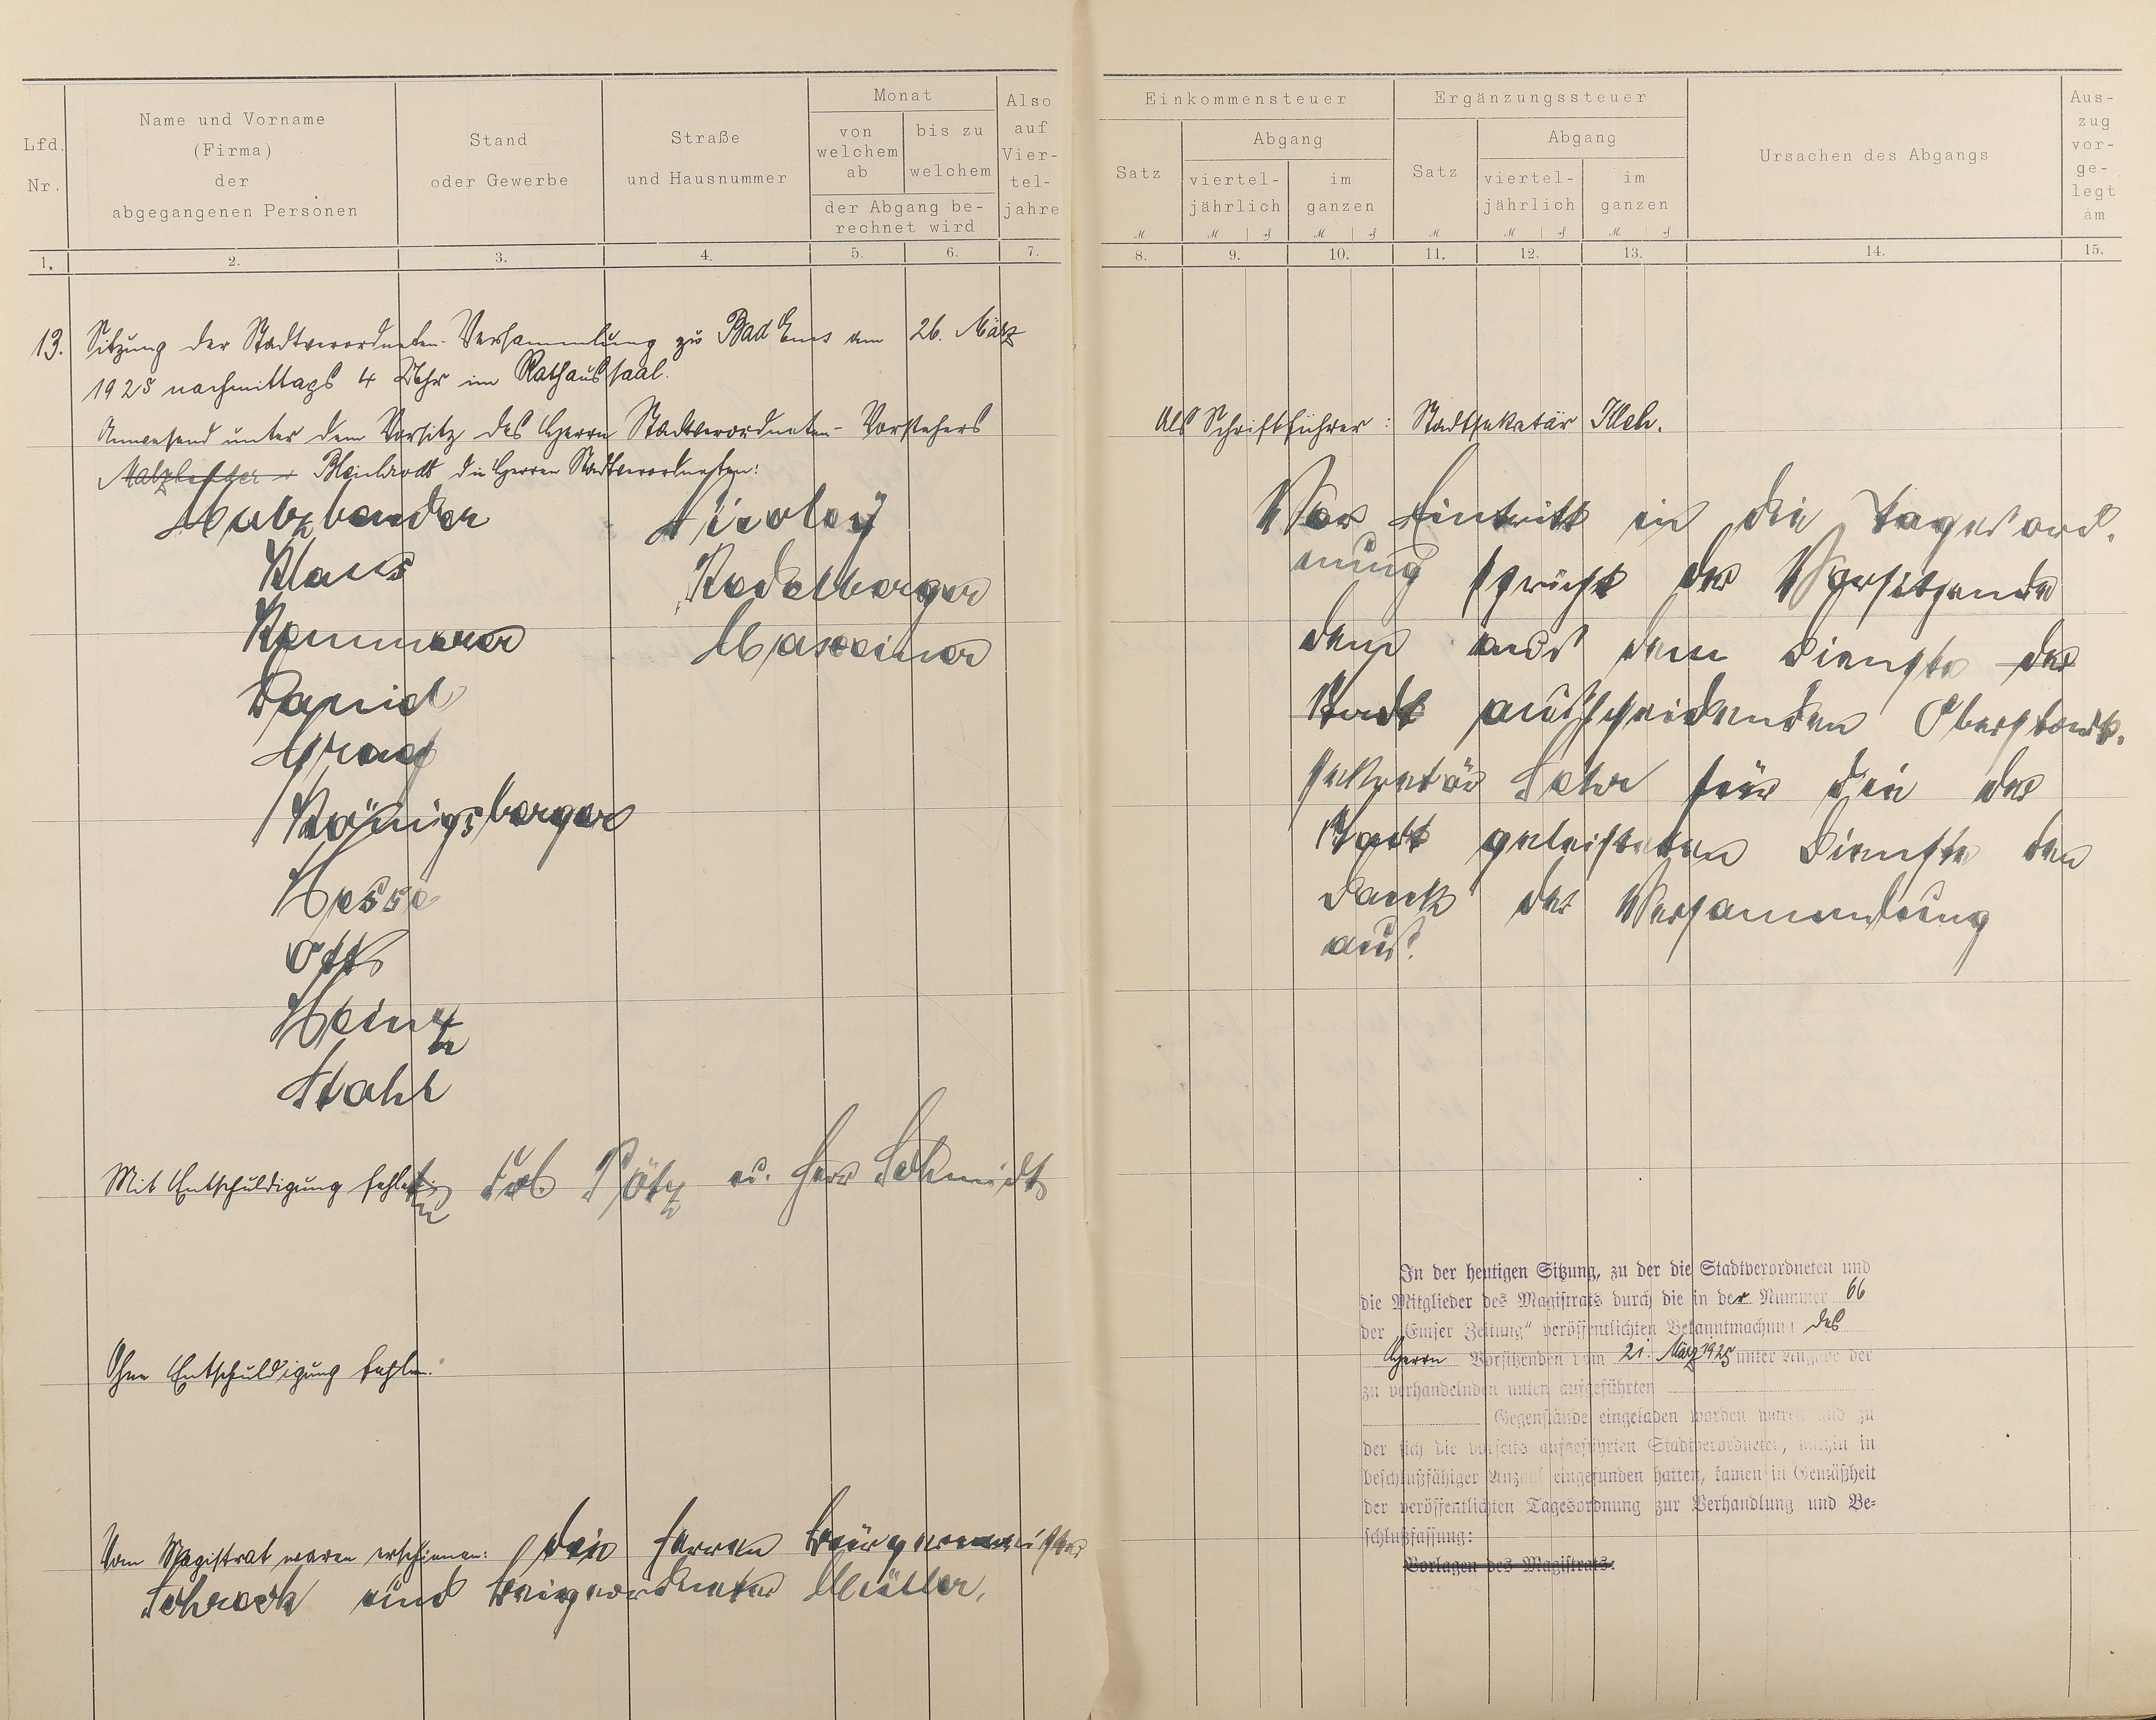 Lfd. Nr.
Name und Vorname
(Firma)
der
abgegangenen Personen
Stand
oder Gewerbe
Straße
und Hausnummer
Monat
von welchem ab
bis zu welchem
der Abgang be-
rechnet wird
Also auf Vier-tel-jahre
1. 2. 3. 4. 5. 6. 7.
13. Sitzung der Stadtverordneten-Versammlung zu Bad Ems am 26. März
1925 nachmittags 4 Uhr im Rathaussaal.
Anwesend unter dem Vorsitz des Herrn Stadtverordneten-Vorstehers
die Herren Stadtverordneten:
Malzbender Nicolay
Klaus Kadelberger
Kemmerer Maxeiner
David
Graef
Königsberger
Hesse
Ott
Heintz
Stahl
Mit Entschuldigung fehlten Frl. Pötz u. Herr Schmidt
Ohne Entschuldigung fehlen.
Vom Magistrat waren erschienen: die Herren Bürgermeister
Schrock und Beigeordneter Müller.
Einkommensteuer
Satz
Abgang
viertel-
jährlich
im
ganzen
Ergänzungssteuer
Satz
Abgang
viertel-
jährlich
im
ganzen
Ursachen des Abgangs
Aus-
zug
vor-
ge-
legt
am
8. 9. 10. 11. 12. 13. 14. 15.
Als Schriftführer: Stadtsekretär
Vor Eintritt in die Tagesord.
nung spricht der Vorsitzende
dem aus dem Dienste der
Stadt ausscheidenden Oberstadt.
sekretär für die der
Stadt geleisteten Dienste den
Dank der Versammlung
aus.
In der heutigen Sitzung, zu der die Stadtverordneten und
die Mitglieder des Magistrats durch die in der Nummer 66
der „Emser Zeitung“ veröffentlichten Bekanntmachung des
Herrn Vorsitzenden vom 21. März 1925 unter Angabe der
zu verhandelnden unten aufgeführten
Gegenstände eingeladen worden waren und zu
der sich die vorseits aufgeführten Stadtverordneten, mithin in
beschlußfähiger Anzahl eingefunden hatten, kamen in Gemäßheit
der veröffentlichten Tagesordnung zur Verhandlung und Be-
schlußfassung:
Vorlagen des Magistrats.